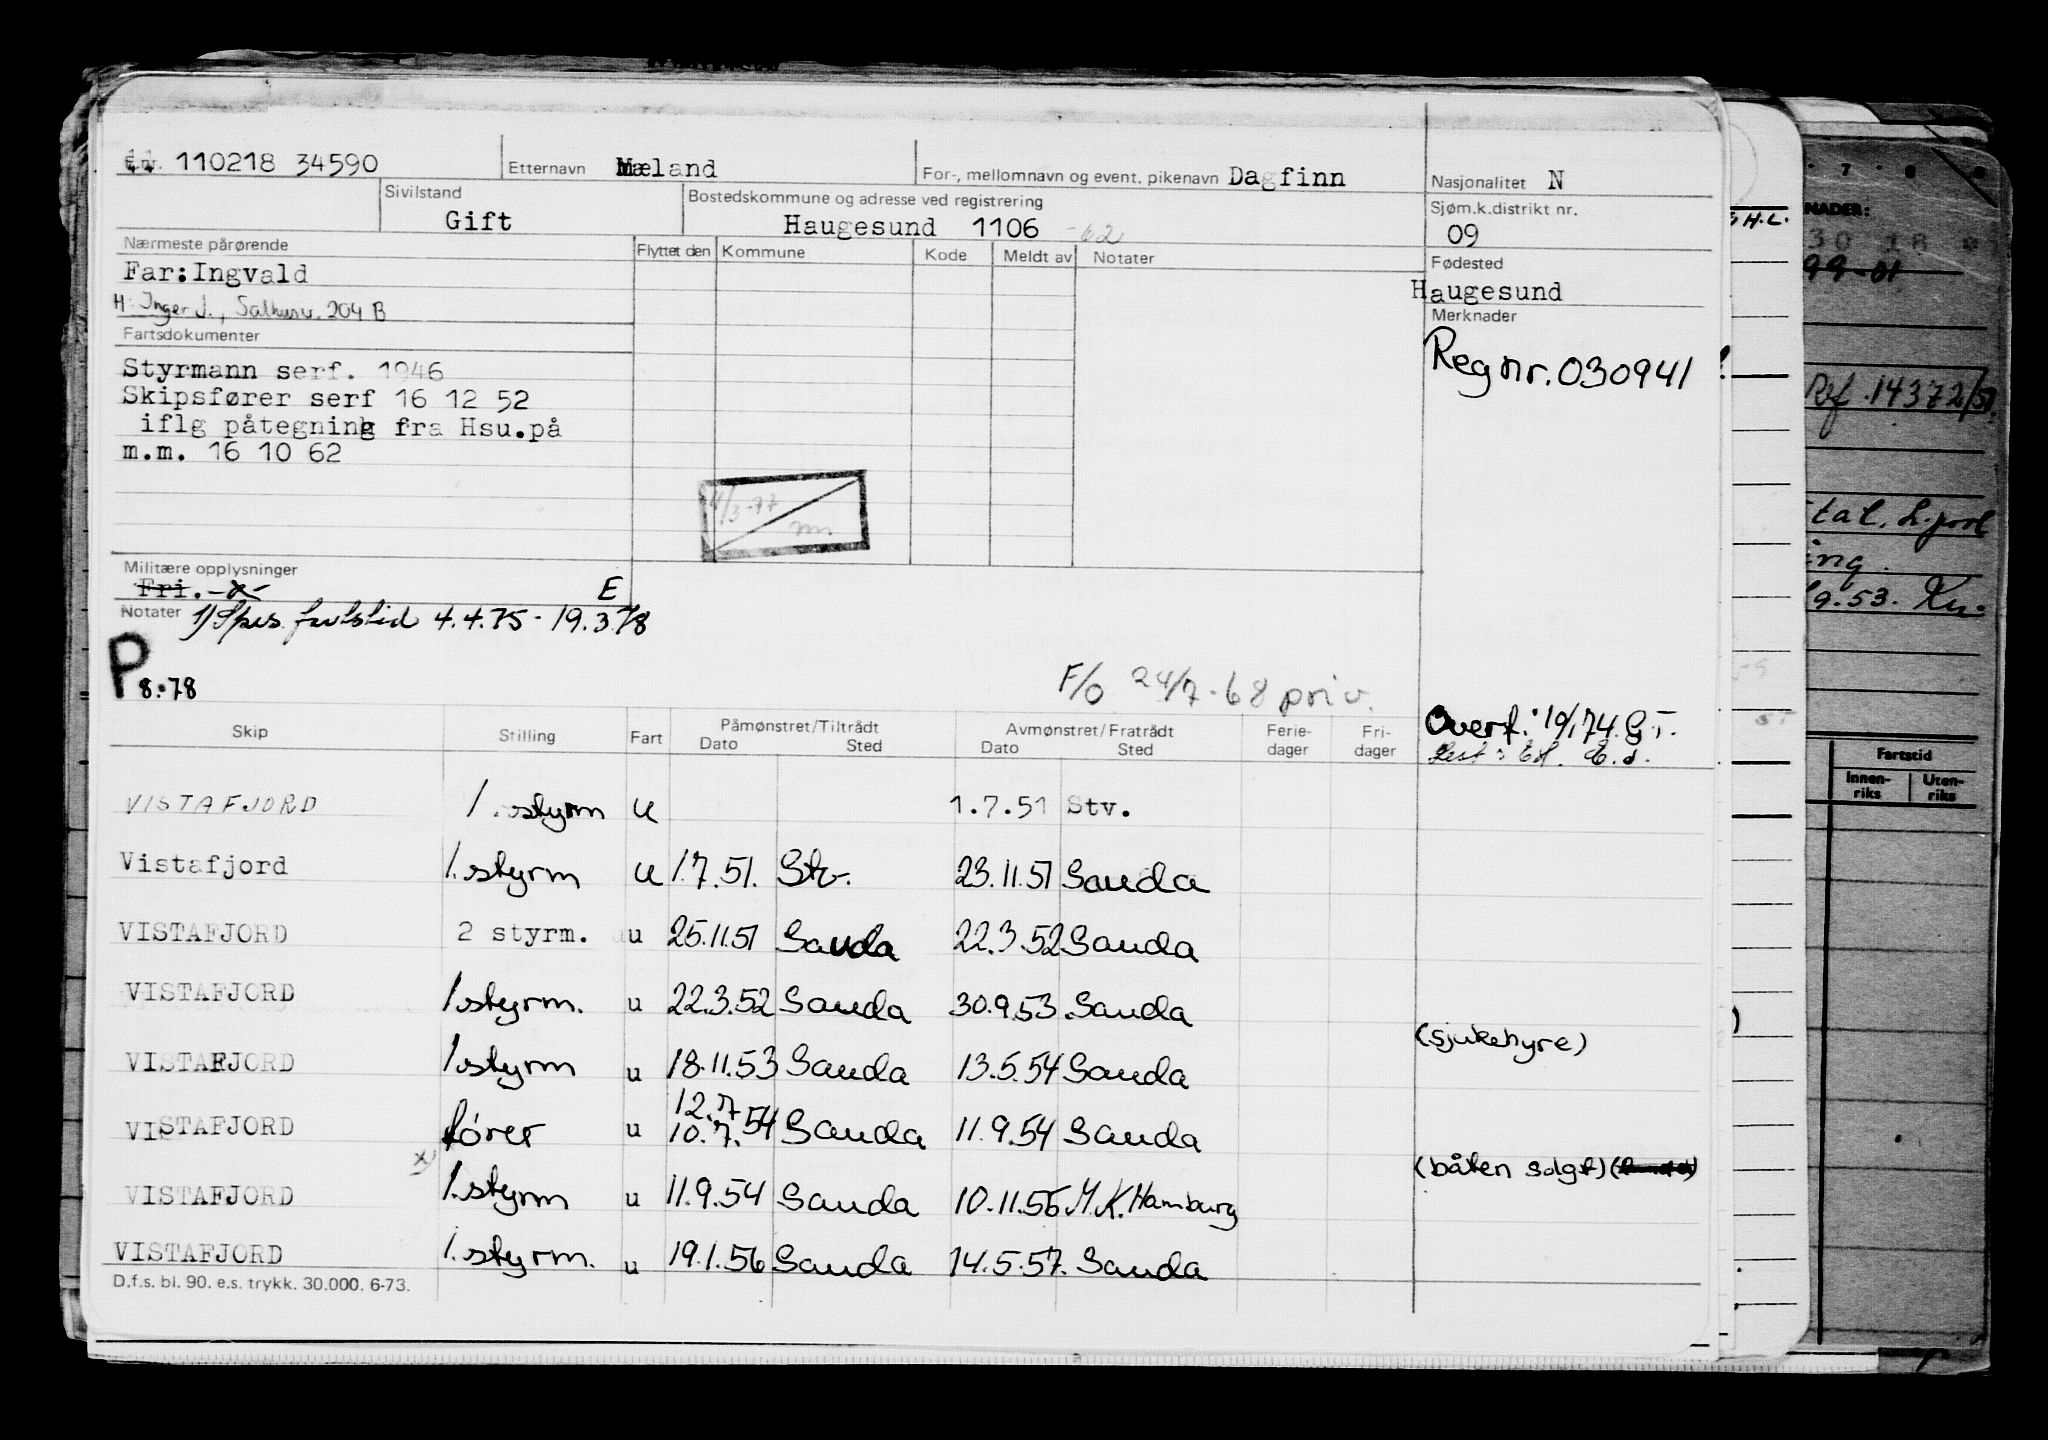 110218 34590 Etternavn Mæland For-, mellomnavn og event. pikenavn Dagfinn Nasjonalitet N
Sivilstand Bostedskommune og adresse ved registrering Sjøm.k.distrikt nr.
Gift Haugesund 1106 -62 09
Nærmeste pårørende Flyttet den Kommune Kode Meldt av Notater Fødested
Far:Ingvald Haugesund
H: Inger J., Salhusv. 204 B Merknader
Fartsdokumenter
Reg nr. 030941
Styrmann serf. 1946
Skipsfører serf 16 12 52
iflg påtegning fra Hsu.på
m.m. 16 10 62
Militære opplysninger
Fri. -x- E
Notater 1) Spes. fartstid 4.4.75 - 19.3.78
P 8.78
F/O 24/7-68 priv.
Overf.: 10/1 74 G.T.
Skip Stilling Fart Påmønstret/Tiltrådt Avmønstret/Fratrådt Ferie- Fri-
Dato Sted Dato Sted dager dager
VISTAFJORD 1. styrm u 1.7.51 Stv.
Vistafjord 1. styrm u 1.7.51. Stv. 23.11.51 Sauda
VISTAFJORD 2 styrm. u 25.11.51 Sauda 22.3.52 Sauda
VISTAFJORD 1. styrm. u 22.3.52 Sauda 30.9.53. Sauda
(sjukehyre)
VISTAFJORD 1. styrm u 18.11.53 Sauda 13.5.54 Sauda
12.7
VISTAFJORD fører u 10.7.54 Sauda 11.9.54 Sauda
x) (båten solgt)
VISTAFJORD 1. styrm u 11.9.54 Sauda 10.11.55 M.K. Hamburg
VISTAFJORD 1. styrm. u 19.1.56 Sauda 14.5.57. Sauda
D.f.s. bl. 90. e.s. trykk. 30.000. 6-73.
H.L.
NADER:
30 18
99-01
Ref. 14372/51.
ing.
9.53.
Fartstid
Innen- Uten-
riks riks